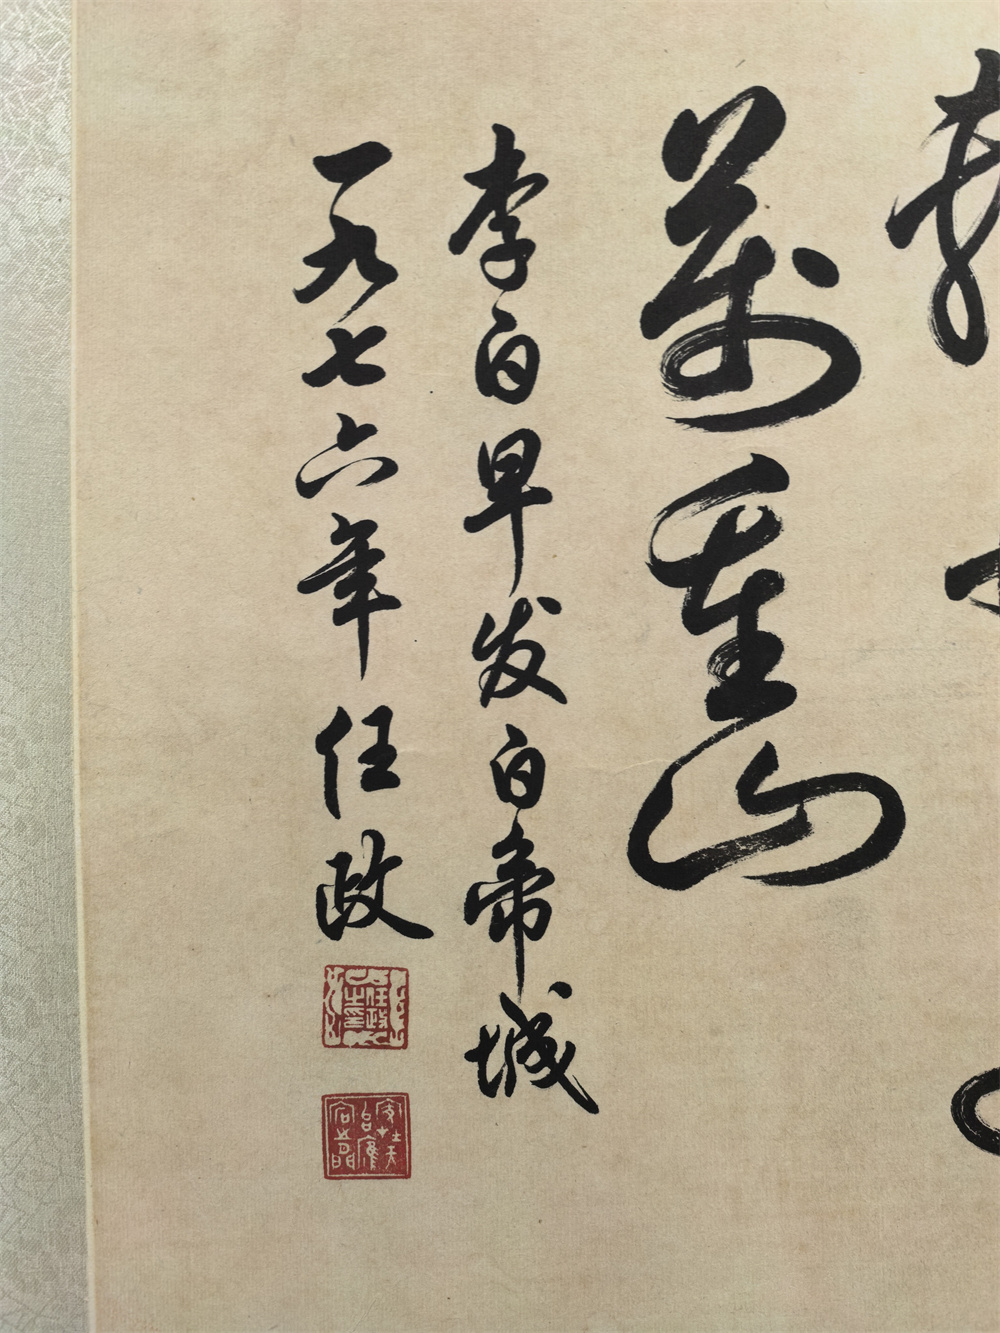 萬重山
李白早发白帝城
一九七六年任政